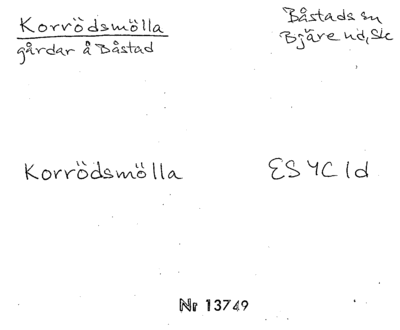 Korrödsmölla
gårdar å Båstad
Båstads sn
Bjäre hd, Sk
Korrödsmölla
ES 4C 1d
Nr 13749